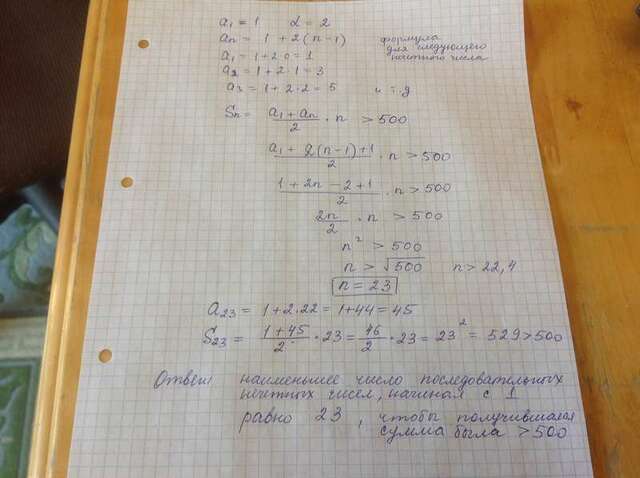 a₁ = 1   d = 2
aₙ = 1 + 2(n-1)   формула
для следующего
нечетного числа
a₁ = 1 + 2·0 = 1
a₂ = 1 + 2·1 = 3
a₃ = 1 + 2·2 = 5   и т.д
Sₙ = (a₁ + aₙ)/2 · n > 500
(a₁ + 2(n-1)+1)/2 · n > 500
(1 + 2n - 2 + 1)/2 · n > 500
2n/2 · n > 500
n² > 500
n > √500   n > 22,4
n = 23
a₂₃ = 1+2·22 = 1+44 = 45
S₂₃ = (1+45)/2 · 23 = 46/2 · 23 = 23² = 529 > 500
Ответ: наименьшее число последовательных
нечетных чисел, начиная с 1
равно 23, чтобы получившаяся
сумма была > 500